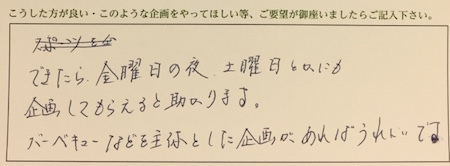 こうした方が良い・このような企画をやってほしい等、ご要望が御座いましたらご記入下さい。
スポーツ
できたら、金曜日の夜、土曜日などにも
企画してもらえると助かります。
バーベキューなどを主体とした企画があればうれしいです。